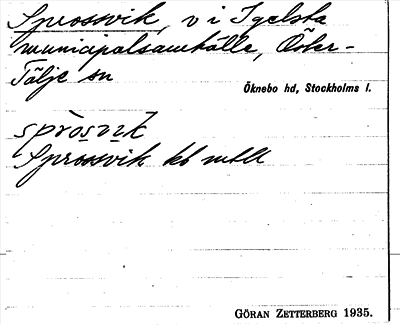 Sprossvik, v i Igelsta
municipalsamhälle, Öster-
Tälje sn
Öknebo hd, Stockholms l.
spròsvik
Sprossvik kb mtll
GÖRAN ZETTERBERG 1935.